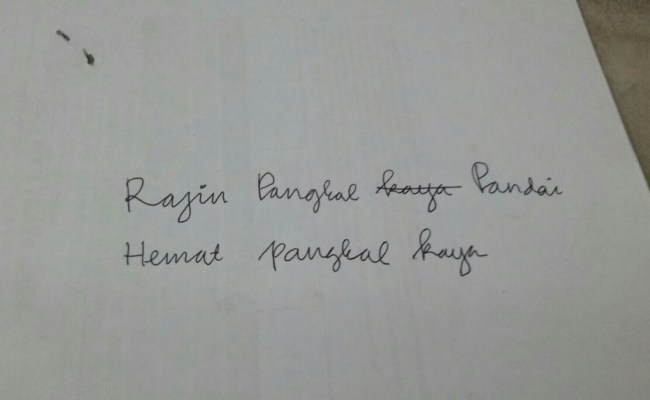 Rajin Pangkal kaya Pandai
Hemat pangkal kaya